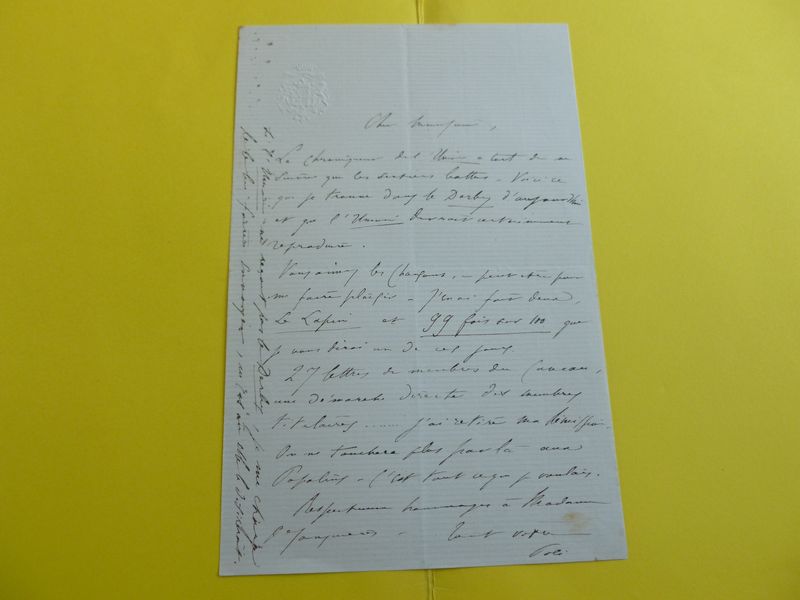 Cher Monsieur,
Le chroniqueur de l'Union a tort de ne
suivre que les derniers battus - Voici ce
que je trouve dans le Derby d'aujourd'hui
et que l'Union devrait certainement
reproduire.
Vous aimez les Chansons, - peut être pour
me faire plaisir - J'en ai fait deux,
Le Lapin et 99 fois sur 100 que
je vous dirai un de ces jours.
27 lettres de membres du Caveau,
une démarche directe des membres
titulaires ...... j'ai retiré ma démission.
On ne touchera plus par là aux
- C'est tout ce que je voulais.
Respectueux hommages à Madame
Tout votre
ne reçoit pas le Derby, je me charge
de le lui faire envoyer,